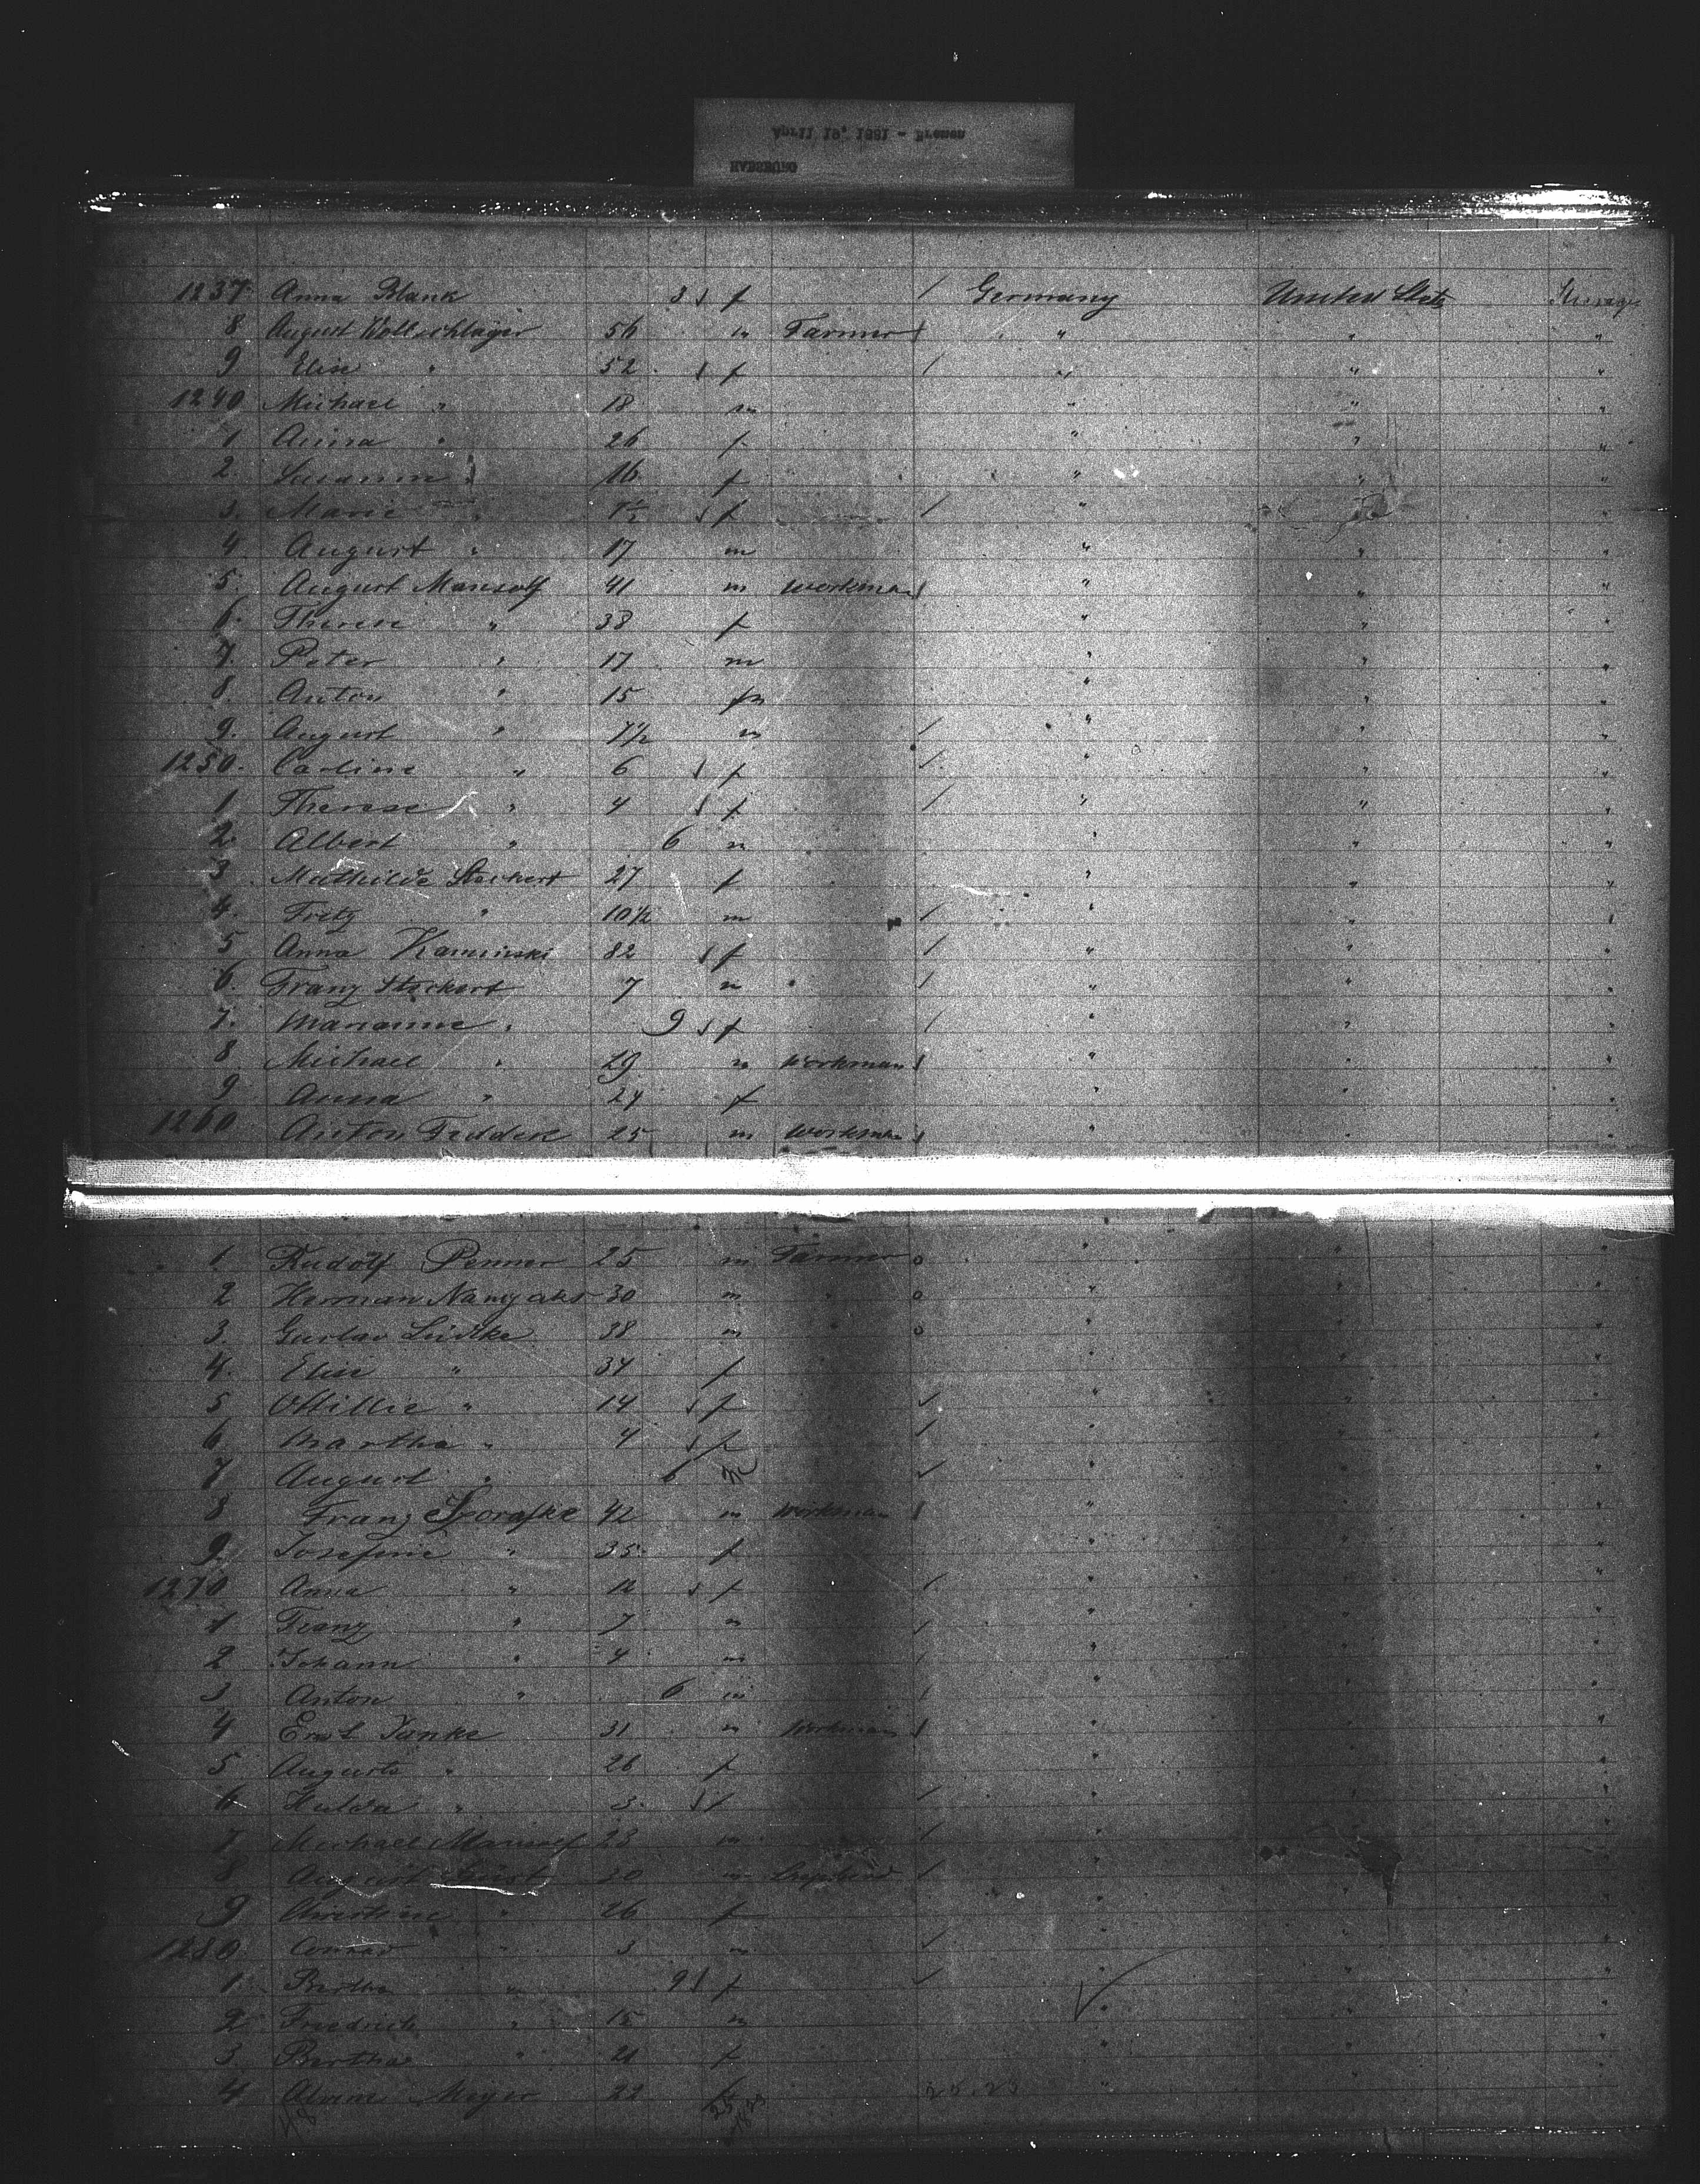 April 19, 1881 - Bremen
HABSBURG
1237 Anna Blank 3 f / Germany United States Steerage
8 August Wollschläger 56 m Farmer " " "
9 Elise " 52 f / " " "
1240 Michael " 18 m " " "
1 Anna " 26 f " " "
2 Susanna " 16 f " " "
3. Marie " f / " " "
4 August " 17 m " " "
5. August Mansolf 41 m workman " " "
6. Therese " 38 f " " "
7. Peter " 17 m " " "
8. Anton " 15 m " " "
9. August " 7 1/2 m / " " "
1250. Carline " 6 f / " " "
1 Therese " 4 f / " " "
2 Albert " 6 m " " "
3 Mathilde Stockert 27 f " " "
4. Fritz " 10 1/2 m / " " "
5 Anna Kaminski 82 f / " " "
6. Franz Stockert 7 m / " " "
7. Marianne " 9 f / " " "
8 Michael " 29 m workman " " "
9 Anna " 24 f " " "
1260 Anton Fedder 25 m workman " " "
1 Rudolf Penner 25 m Farmer o " " "
2 Herman 30 m " o " " "
3. Gustav Lüdtke 38 m " o " " "
4. Elise " 34 f " " "
5 Ottillie " 14 f / " " "
6 Martha " 4 f / " " "
7 August " 6 m / " " "
8 Franz 42 m workman " " "
9. Josefine " 35 f " " "
1270 Anna " f / " " "
1 Franz " 7 m / " " "
2 Johann " 4 m / " " "
3 Anton " 6 m / " " "
4 Ernst Janke 31 m Workman " " "
5 Auguste " 26 f " " "
6 Hulda " 3 f / " " "
7 Michael Mansolf 23 m " / " " "
8 August m / " " "
9 Christine " 26 f " " "
1280 Conrad " 3 m / " " "
1 Bertha " 9 f / " " "
2 Friedrich " 15 m " " "
3 Bertha " 21 f " " "
4 Meyer 22 f " " "